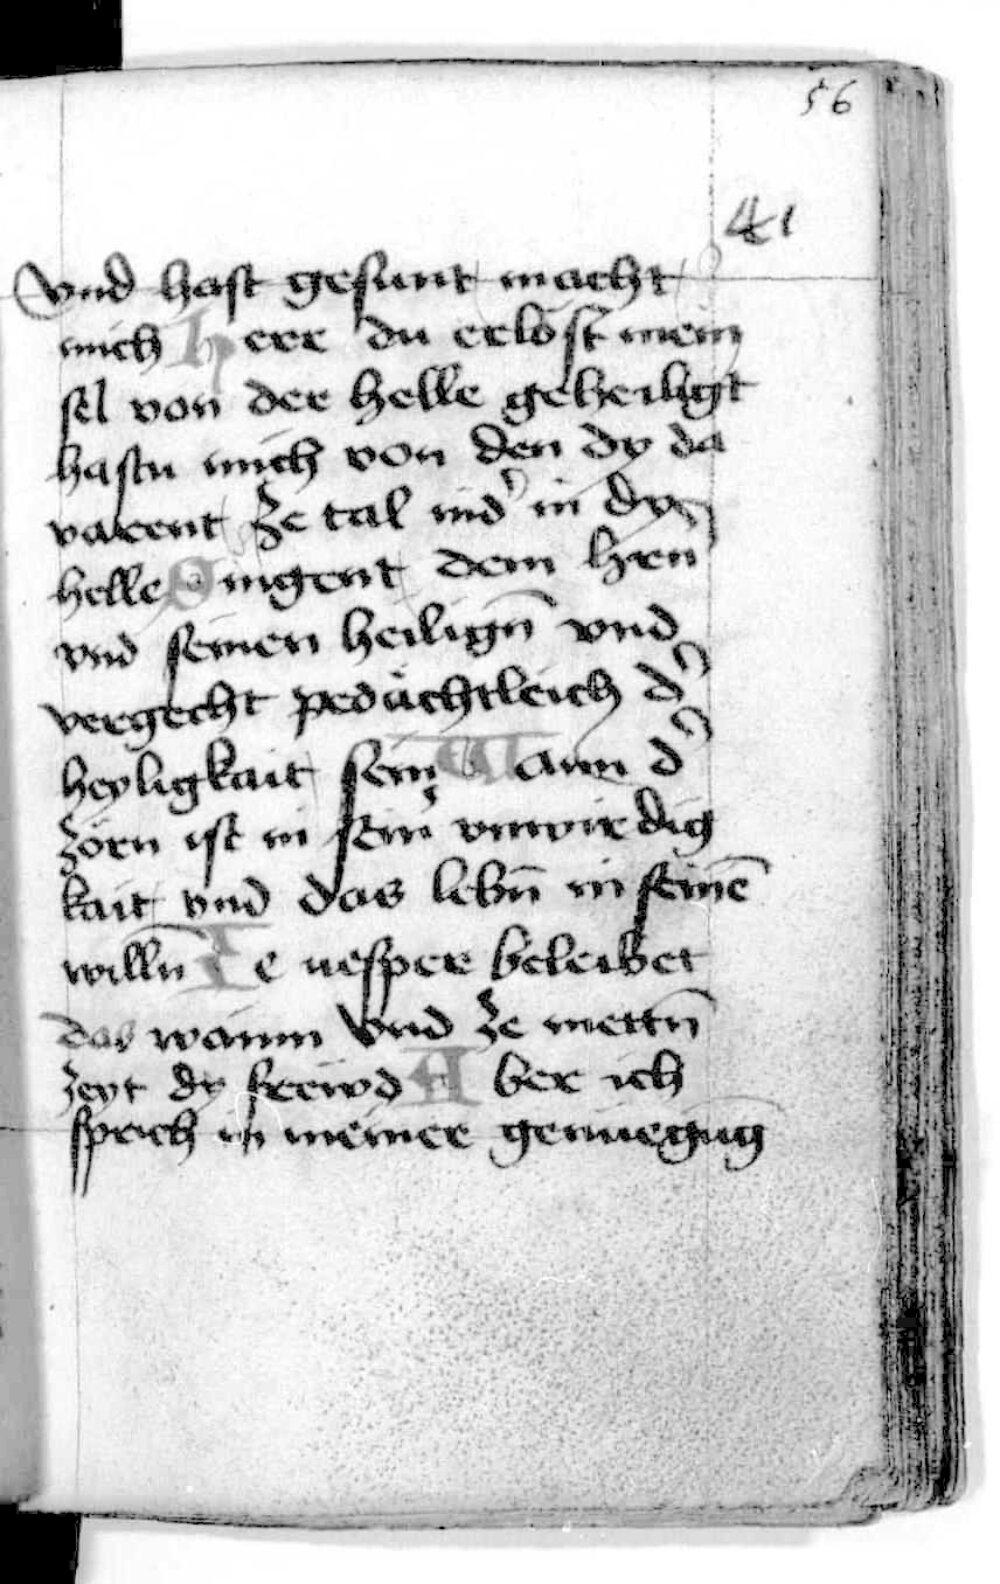 56
41
vnd hast gesunt macht
mich herr du erlöst mein
sel von der helle geheiligt
hastu mich von den dy da
varent ze tal nid' in dy
helle Singent dem hren
vnd seinen heiligñ vnd
vergecht pedächtleich d'
heyligkait sein Wann d'
zorn ist in sein vnwirdig
kait vnd das lebñ in seinē
willñ Ze uesper beleibet
das wainn vnd ze mettñ
zeyt dy freiwd Aber ich
sprich in meiner genuegūg